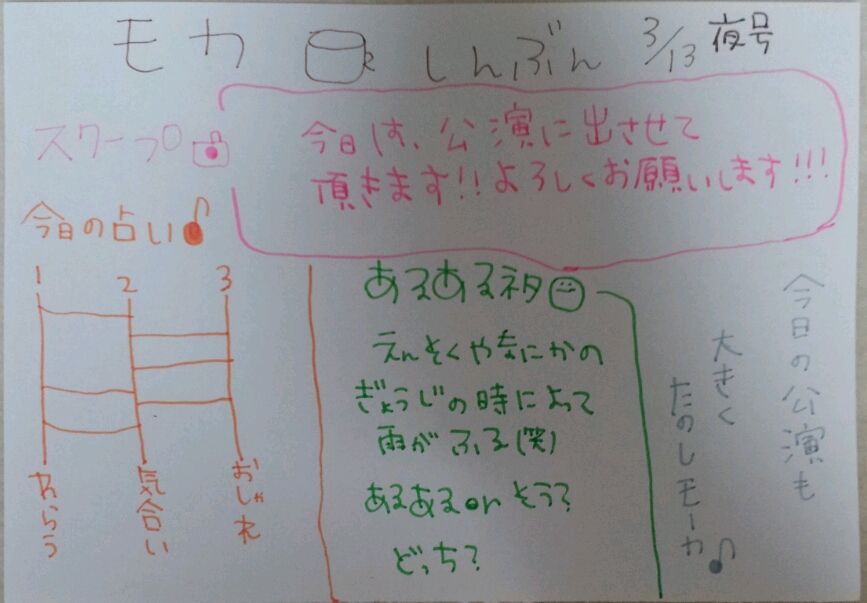 モカ しんぶん 3/13 夜号
スクープ
今日は、公演に出させて
頂きます!!よろしくお願いします!!!
今日の占い
1 2 3
わらう
気合い
おしゃれ
あるあるネタ
えんそくやなにかの
ぎょうじの時によって
雨がふる(笑)
あるあるorそう?
どっち?
今日の公演も
大きく
たのしモーカ